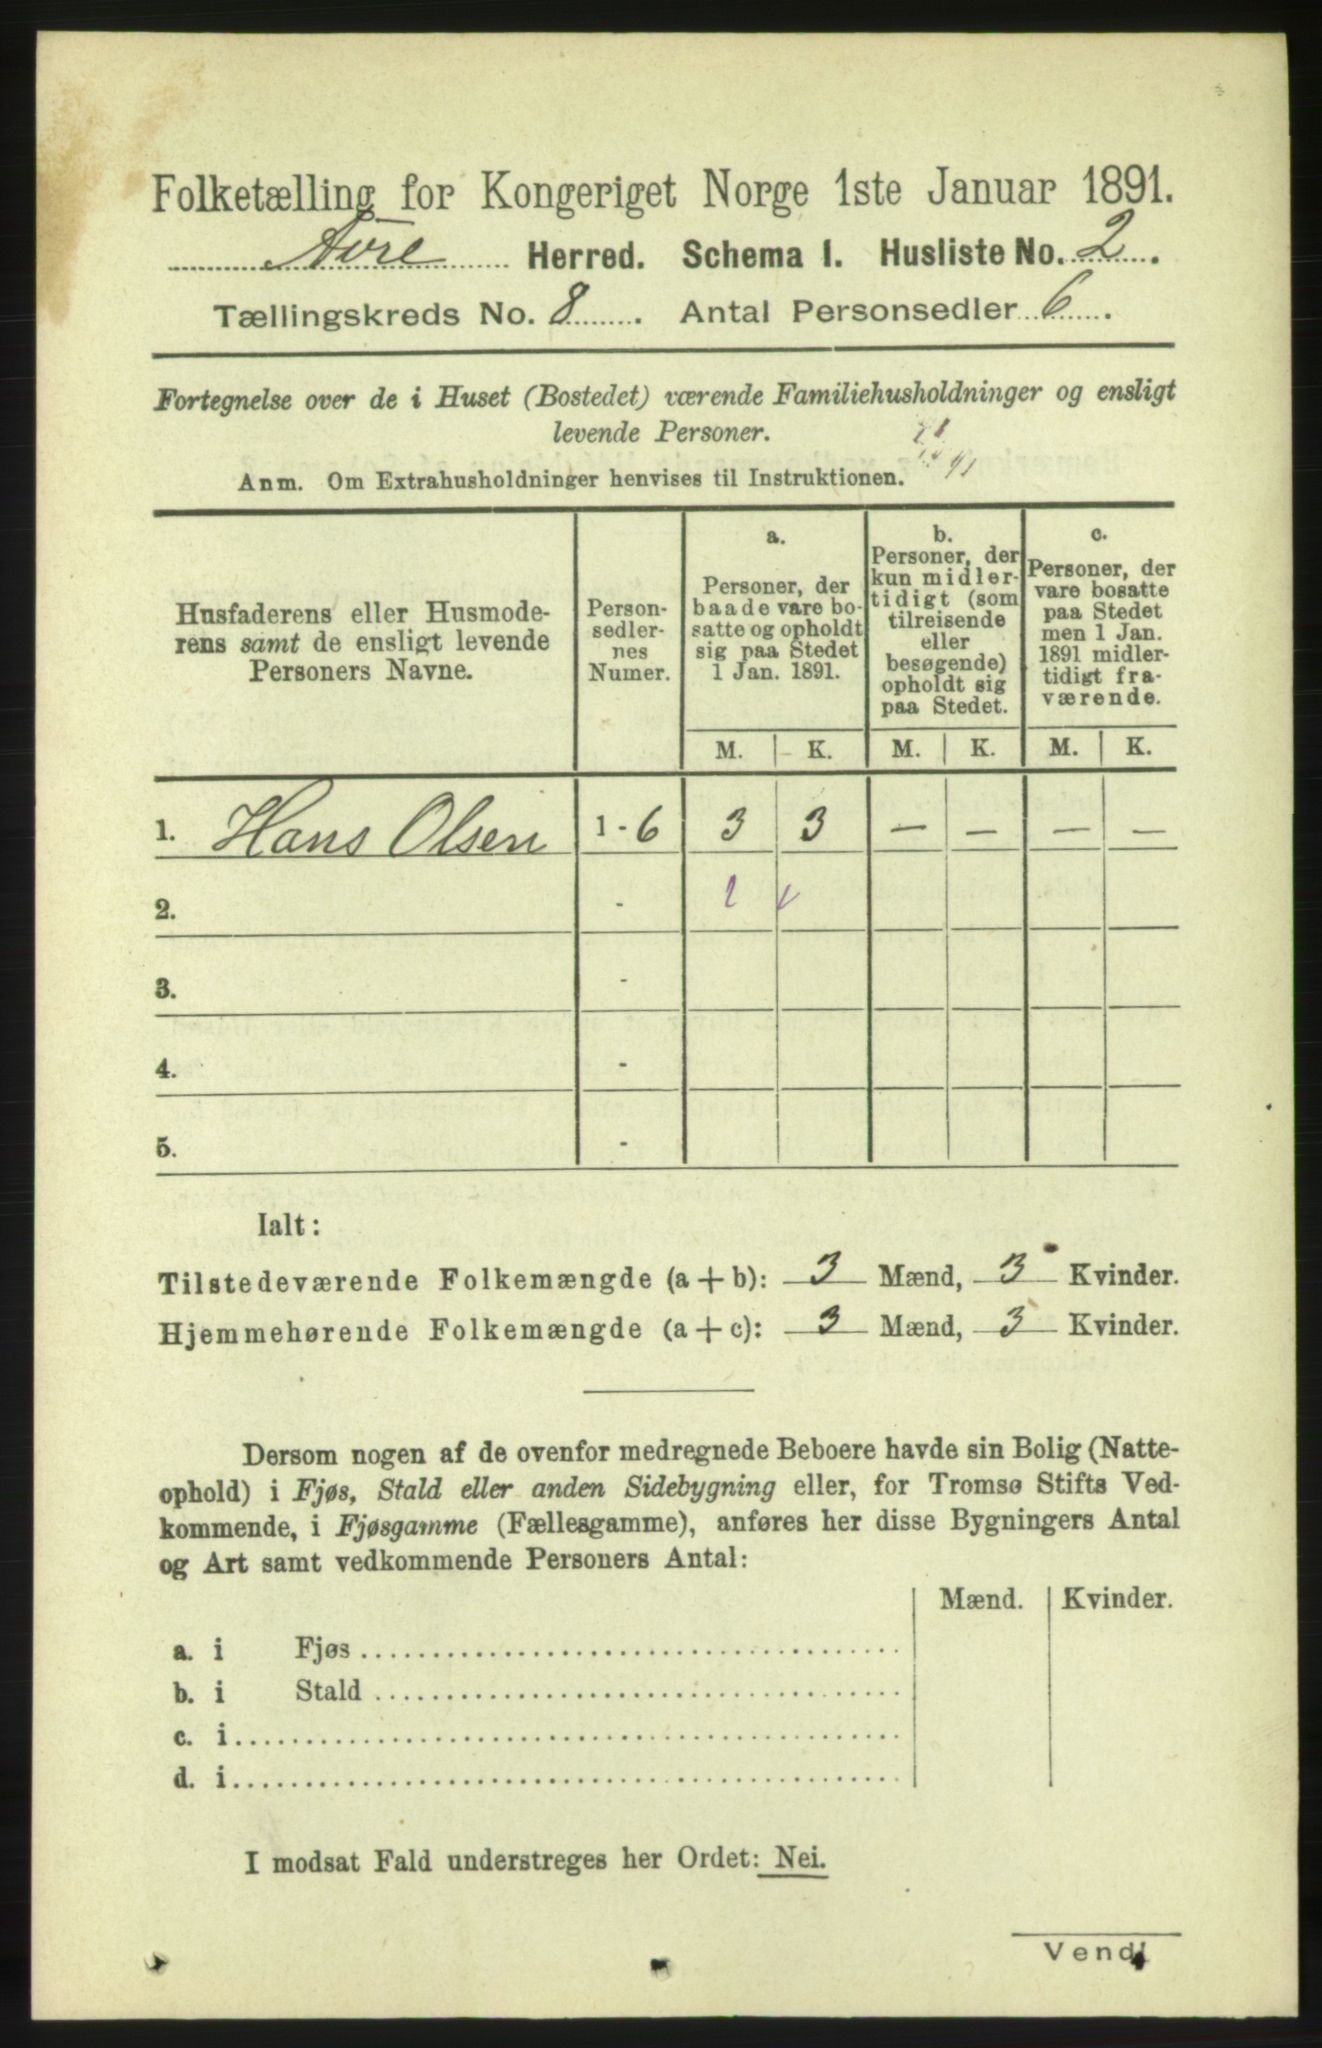 Folketælling for Kongeriget Norge 1ste Januar 1891.
Aure Herred. Schema I. Husliste No. 2.
Tællingskreds No. 8. Antal Personsedler 6.
Fortegnelse over de i Huset (Bostedet) værende Familiehusholdninger og ensligt
levende Personer.
Anm. Om Extrahusholdninger henvises til Instruktionen.
Husfaderens eller Husmode-
rens samt de ensligt levende
Personers Navne.
Person-
sedler-
nes
Numer.
a.
Personer, der
baade vare bo-
satte og opholdt
sig paa Stedet
1 Jan. 1891.
b.
Personer, der
kun midler-
tidigt (som
tilreisende
eller
besøgende)
opholdt sig
paa Stedet.
c.
Personer, der
vare bosatte
paa Stedet
men 1 Jan.
1891 midler-
tidigt fra-
værende.
M. K. M. K. M. K.
1. Hans Olsen 1 - 6 3 3 — — — —
2. -
3. -
4. -
5. -
Ialt:
Tilstedeværende Folkemængde (a + b): 3 Mænd, 3 Kvinder.
Hjemmehørende Folkemængde (a + c): 3 Mænd, 3 Kvinder.
Dersom nogen af de ovenfor medregnede Beboere havde sin Bolig (Natte-
ophold) i Fjøs, Stald eller anden Sidebygning eller, for Tromsø Stifts Ved-
kommende, i Fjøsgamme (Fællesgamme), anføres her disse Bygningers Antal
og Art samt vedkommende Personers Antal:
Mænd. Kvinder.
a. i Fjøs
b. i Stald
c. i
d. i
I modsat Fald understreges her Ordet: Nei.
Vend!